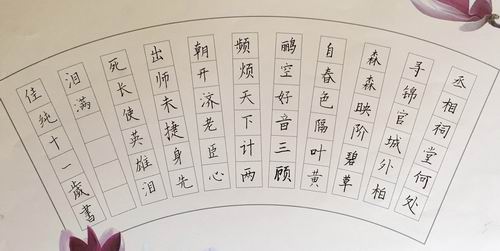 丞相祠堂何处
寻锦官城外柏
森森映阶碧草
自春色隔叶黄
鹂空好音三顾
频烦天下计两
朝开济老臣心
出师未捷身先
死长使英雄泪
泪满
佳纯十一歲書